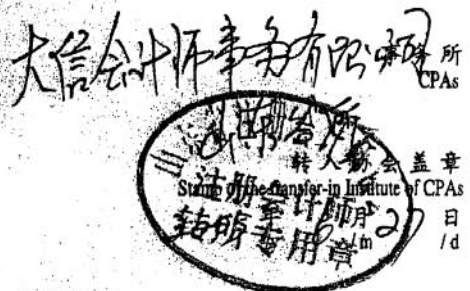 大信会计师事务有限 事务所
CPAs
转入协会盖章
Stamp of the transfer-in Institute of CPAs
注册会计师
转所专用章
月 27 日
/m /d